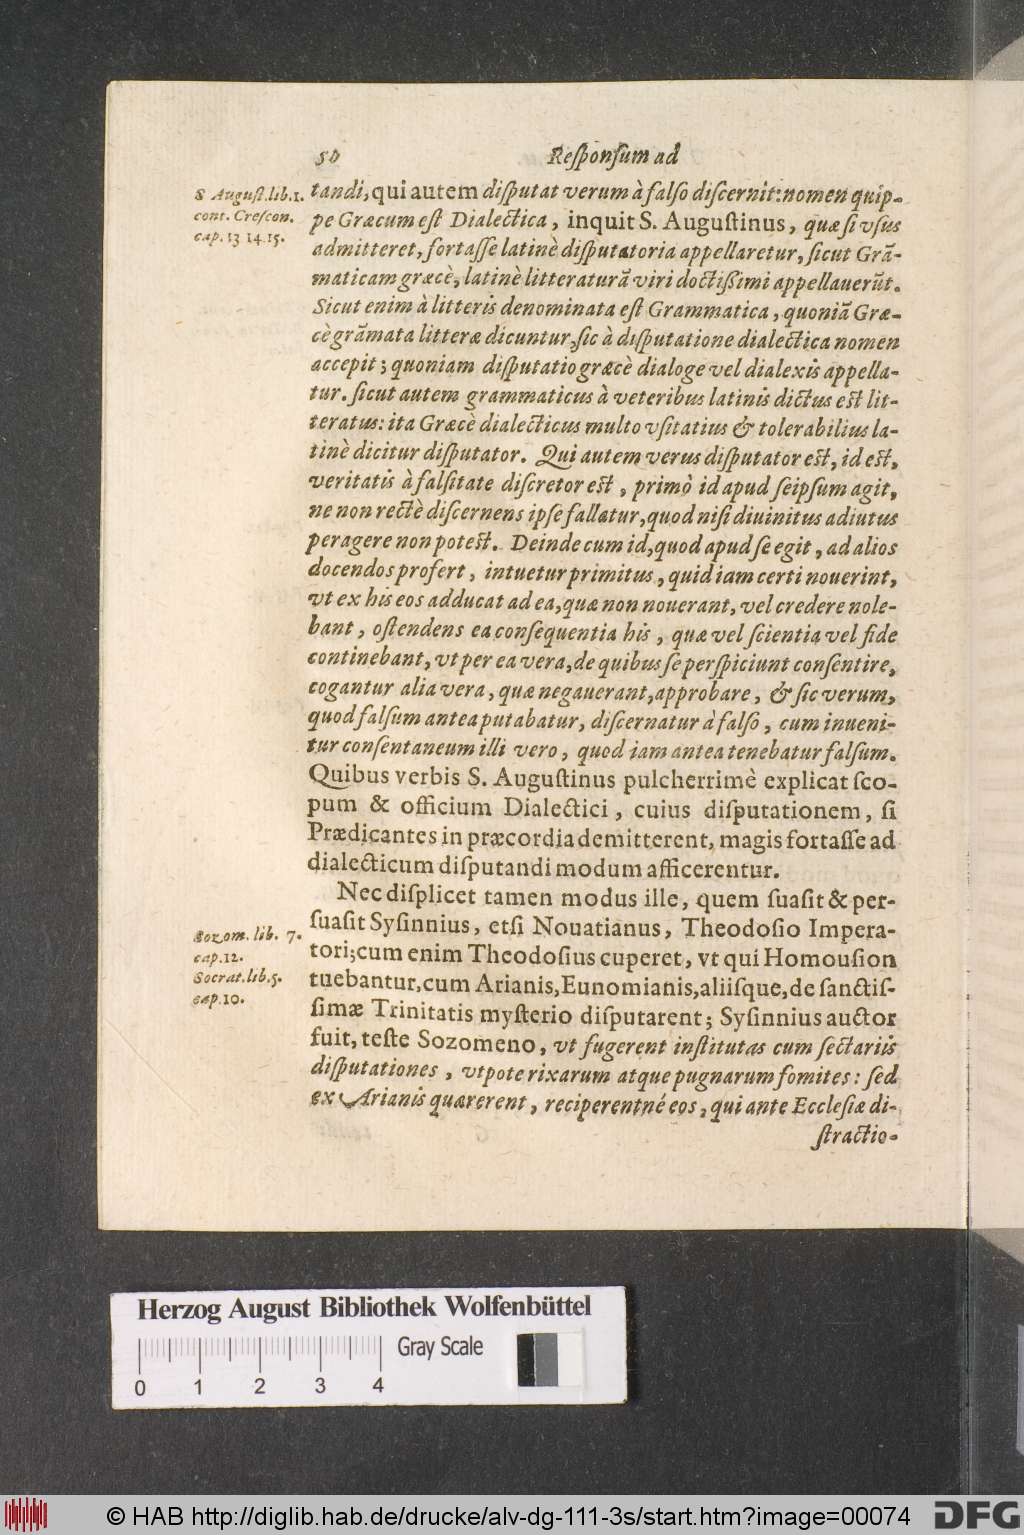 50 Reſponſum ad
S Auguſt. lib. 1.
cont. Creſcon.
cap. 13 14. 15.
tandi, qui autem diſputat verum à falſo diſcernit: nomen quip-
pe Græcum eſt Dialectica, inquit S. Auguſtinus, quæ ſi vſus
admitteret, fortaſſe latinè diſputatoria appellaretur, ſicut Grã-
maticam græcè, latinè litteraturã viri doctißimi appellauerũt.
Sicut enim à litteris denominata eſt Grammatica, quoniã Græ-
cè grãmata litteræ dicuntur, ſic à diſputatione dialectica nomen
accepit; quoniam diſputatio græcè dialoge vel dialexis appella-
tur. ſicut autem grammaticus à veteribus latinis dictus eſt lit-
teratus: ita Græcè dialecticus multo vſitatius & tolerabilius la-
tinè dicitur diſputator. Qui autem verus diſputator eſt, id eſt,
veritatis à falſitate diſcretor eſt, primò id apud ſeipſum agit,
ne non rectè diſcernens ipſe fallatur, quod niſi diuinitus adiutus
peragere non poteſt. Deinde cum id, quod apud ſe egit, ad alios
docendos profert, intuetur primitus, quid iam certi nouerint,
vt ex his eos adducat ad ea, quæ non nouerant, vel credere nole-
bant, oſtendens ea conſequentia his, quæ vel ſcientia vel fide
continebant, vt per ea vera, de quibus ſe perſpiciunt conſentire,
cogantur alia vera, quæ negauerant, approbare, & ſic verum,
quod falſum antea putabatur, diſcernatur à falſo, cum inueni-
tur conſentaneum illi vero, quod iam antea tenebatur falſum.
Quibus verbis S. Auguſtinus pulcherrimè explicat ſco-
pum & officium Dialectici, cuius diſputationem, ſi
Prædicantes in præcordia demitterent, magis fortaſſe ad
dialecticum diſputandi modum afficerentur.
Nec diſplicet tamen modus ille, quem ſuaſit & per-
ſuaſit Syſinnius, etſi Nouatianus, Theodoſio Impera-
Sozom. lib. 7.
cap. 12.
Socrat. lib. 5.
cap. 10.
tori; cum enim Theodoſius cuperet, vt qui Homouſion
tuebantur, cum Arianis, Eunomianis, aliiſque, de ſanctiſ-
ſimæ Trinitatis myſterio diſputarent; Syſinnius auctor
fuit, teſte Sozomeno, vt fugerent inſtitutas cum ſectariis
diſputationes, vtpote rixarum atque pugnarum fomites: ſed
ex Arianis quærerent, reciperentné eos, qui ante Eccleſiæ di-
ſtractio-
Herzog August Bibliothek Wolfenbüttel
Gray Scale
0 1 2 3 4
© HAB http://diglib.hab.de/drucke/alv-dg-111-3s/start.htm?image=00074
DFG